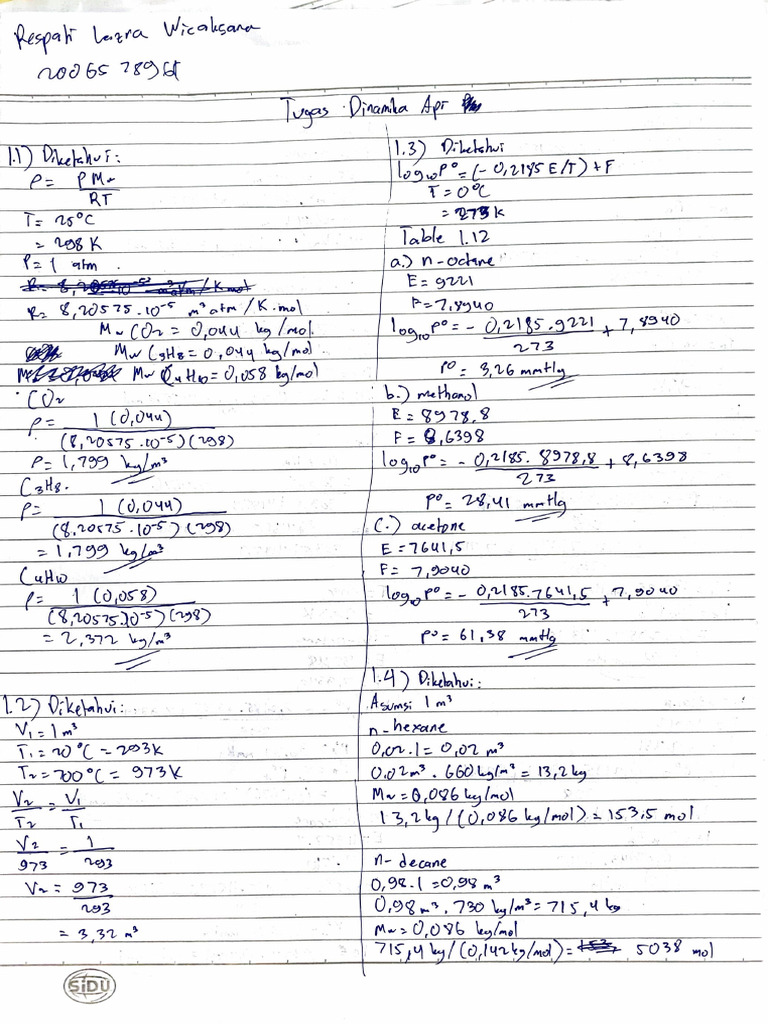 Respati Lazra Wicaksana
Tugas Dinamika Api
1.1) Diketahui:
ρ = P Mw
RT
T = 25°C
= 298 K
P = 1 atm
R = 8,20575.10⁻⁵ m³atm / K.mol
Mw CO2 = 0,044 kg/mol
Mw C3H8 = 0,044 kg/mol
Mw C4H10 = 0,058 kg/mol
CO2
ρ = 1 (0,044)
(8,20575.10⁻⁵)(298)
ρ = 1,799 kg/m³
C3H8.
ρ = 1 (0,044)
(8,20575.10⁻⁵)(298)
= 1,799 kg/m³
C4H10
ρ = 1 (0,058)
(8,20575.10⁻⁵)(298)
= 2,372 kg/m³
1.2) Diketahui:
V1 = 1 m³
T1 = 20°C = 293K
T2 = 700°C = 973K
V2 = V1
T2 T1
V2 = 1
973 293
V2 = 973
293
= 3,32 m³
1.3) Diketahui
log10 P° = (- 0,2185 E/T) + F
T = 0°C
= 273 K
Table 1.12
a.) n-octane
E = 9221
F = 7,8940
log10 P° = - 0,2185.9221 + 7,8940
273
P° = 3,26 mmHg
b.) methanol
E = 8978,8
F = 8,6398
log10 P° = - 0,2185. 8978,8 + 8,6398
273
P° = 28,41 mmHg
(c.) acetone
E = 7641,5
F = 7,9040
log10 P° = - 0,2185.7641,5 + 7,9040
273
P° = 61,38 mmHg
1.4) Diketahui:
Asumsi 1 m³
n-hexane
0,02.1 = 0,02 m³
0.02m³. 660 kg/m³ = 13,2 kg
Mw = 0,086 kg/mol
13,2 kg / (0,086 kg/mol) = 153,5 mol
n-decane
0,98.1 = 0,98 m³
0,98 m³. 730 kg/m³ = 715,4 kg
Mw = 0,086 kg/mol
715,4 kg / (0,142 kg/mol) = 5038 mol
SiDU